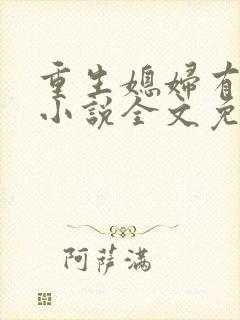 重生媳婦有
小說全文免
阿薩滿